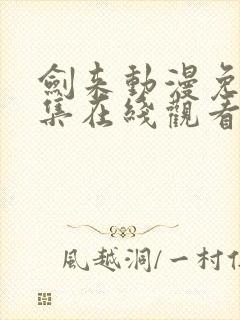 劍来動漫免
集在綫觀看
風越洞/一村住